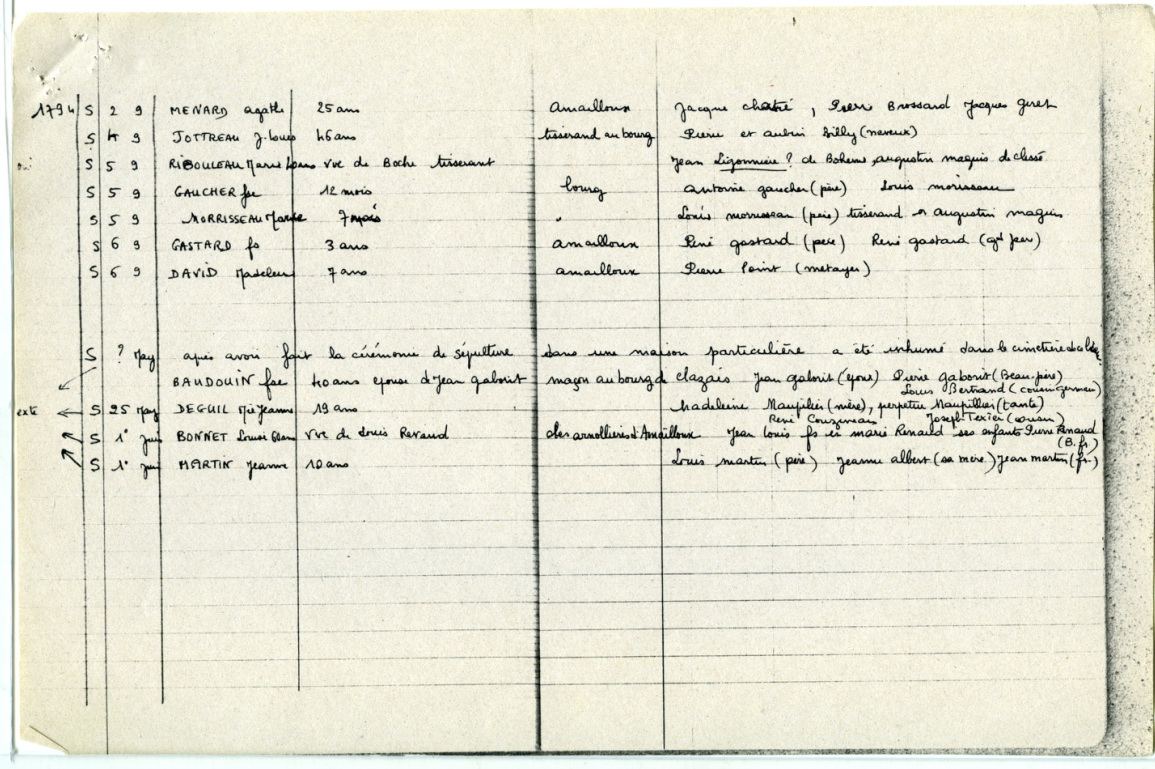 1794 S 2 9 MENARD agathe 25 ans amailloux Jacque chatié, Pierre Brossard Jacques giret
S 4 9 JOTTREAU J. Louis 46 ans tisserand au bourg Pierre et aubin Billy (neveux)
S 5 9 RIBOULEAU Marie vve de Boche tisserant Jean Ligonnière ? de Boheme, augustin maquis de clessé
S 5 9 GAUCHER fse 12 mois bourg antoine gaucher (père) Louis morisseau
S 5 9 MORRISSEAU Marie 7 mois " Louis morrisseau (père) tisserand et augustin maquis
S 6 9 GASTARD fs 3 ans amailloux René gastard (père) René gastard (gd père)
S 6 9 DAVID Madeleine 7 ans amailloux Pierre Point (metayer)
S ? May après avoir fait la cérémonie de sépulture dans une maison particulière a été inhumé dans le cimetière
BAUDOUIN fse 40 ans epouse de Jean gaborit maçon au bourg de clazais Jean gaborit (epoux) Pierre gaborit (Beau-père)
Louis Bertrand (cousin germain)
exte S 25 May DEGUIL Mie Jeanne 19 ans Madeleine Maupilier (mère), perpetue Maupillier (tante)
René Couzineau Joseph Texier (cousin)
S 1° juin BONNET Louise vve de Louis Revaud des arnollieres d'Amailloux Jean Louis fs et marie Renaud ses enfants Pierre Renaud
(B. fr.)
S 1° jui MARTIN Jeanne 10 ans Louis martin (père) Jeanne albert (sa mère) Jean martin (fr.)